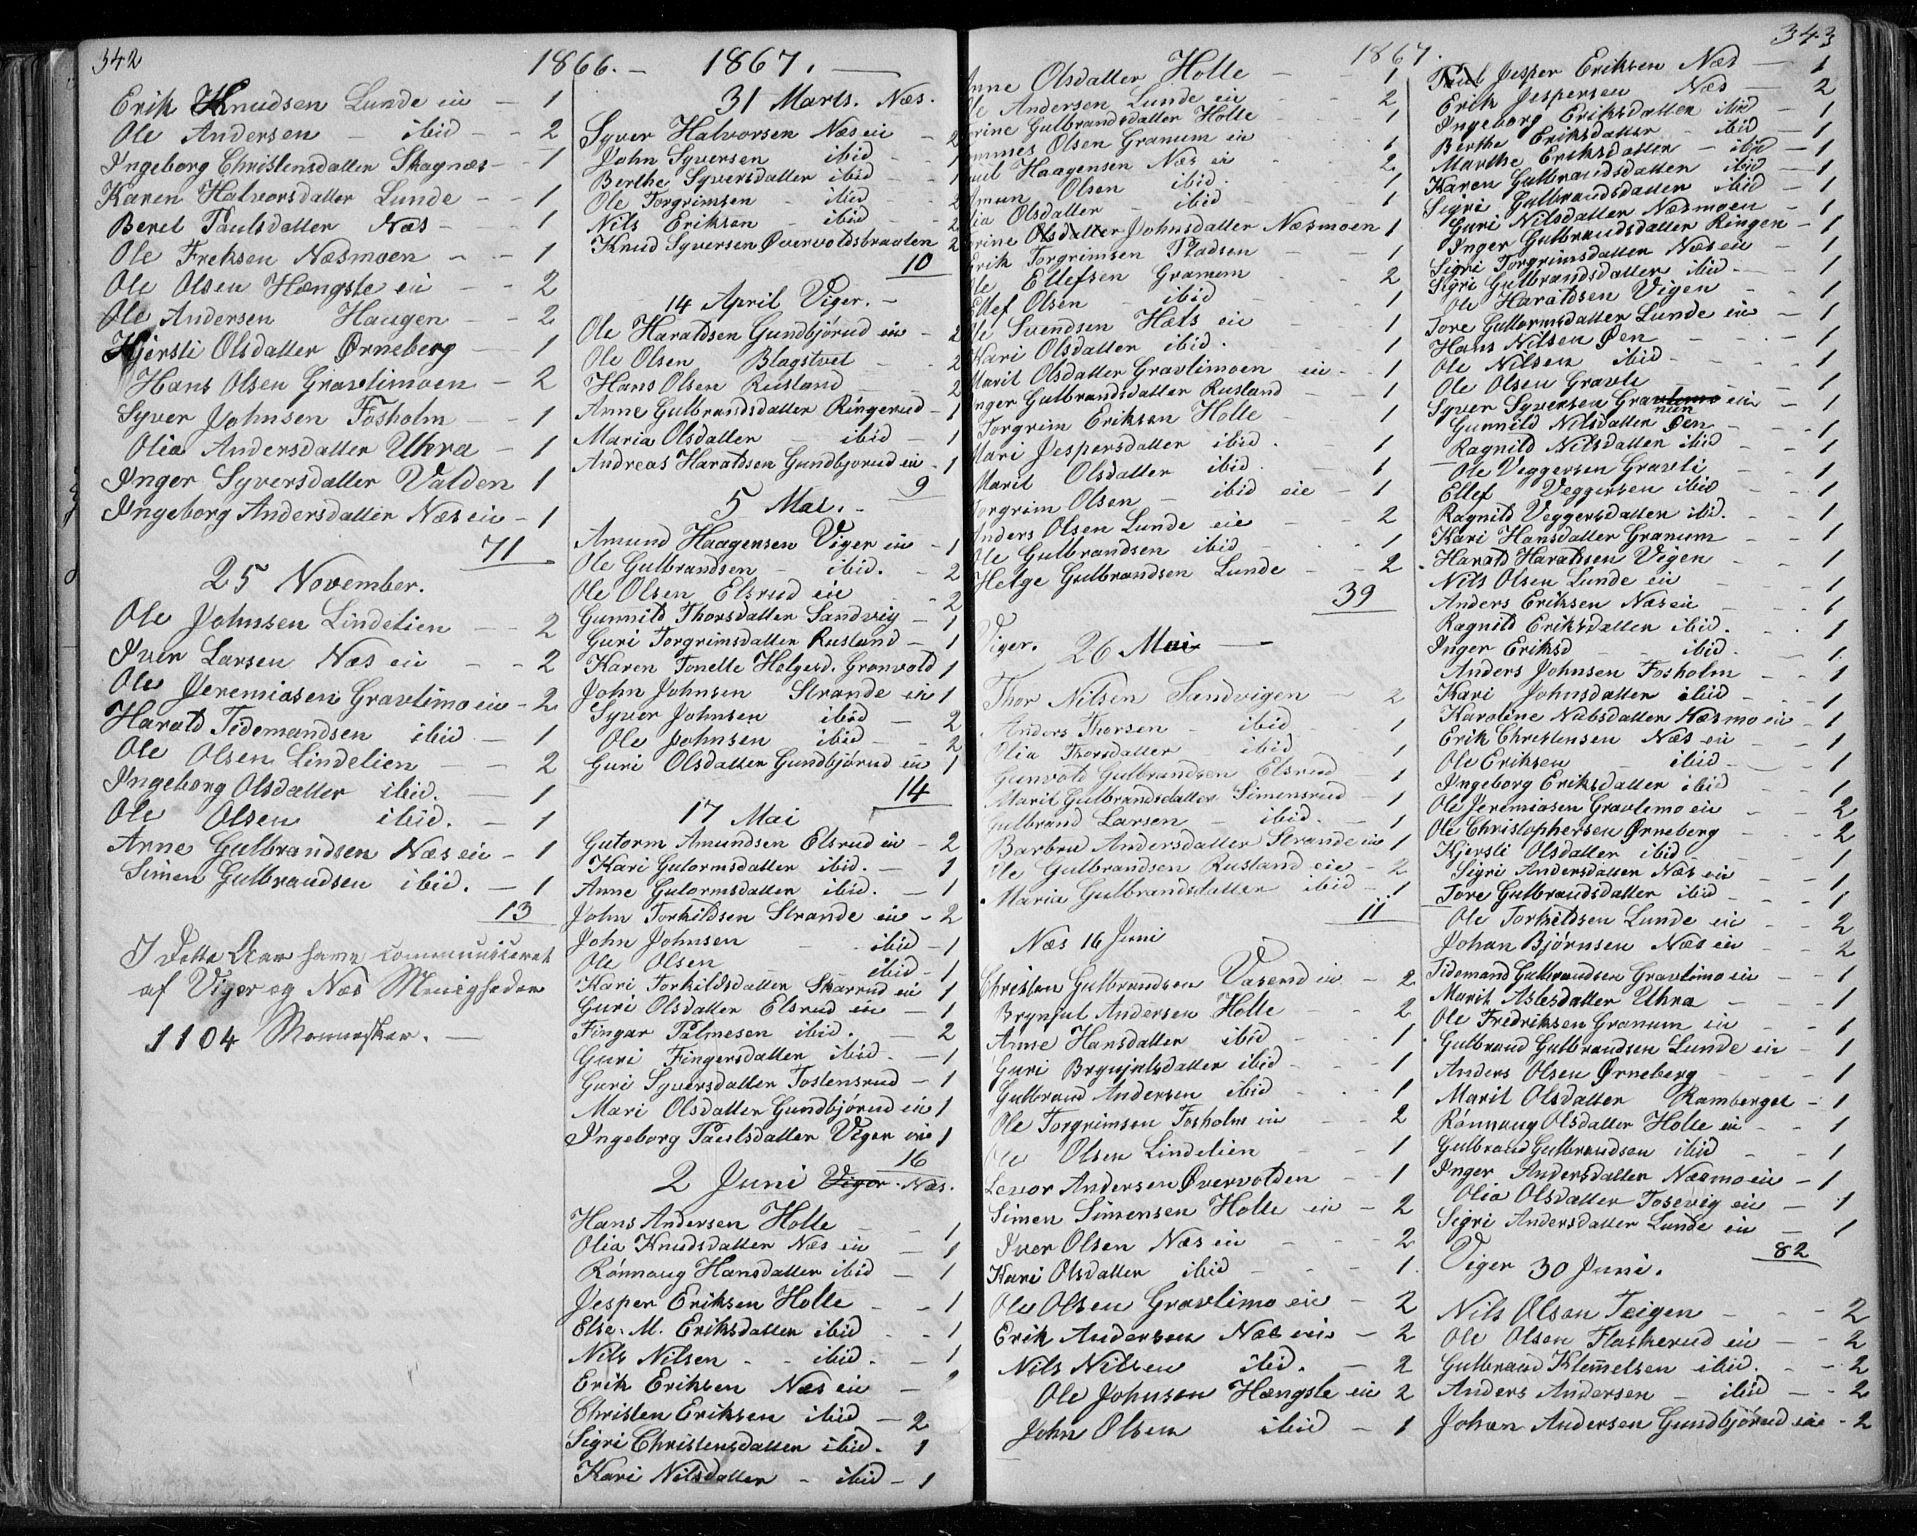 342
1866. –
Erik Knudsen Lunde eie – 1
Ole Andersen – ibid – – 2
Ingeborg Christensdatter Skagnæs – – 1
Karen Halvorsdatter Lunde – – 1
Beret Paulsdatter Næs – – 1
Ole Freksen Næsmoen – – 1
Ole Olsen Hængsle ei – – 2
Ole Andersen Haugen – – 2
Kjersti Olsdatter Ørneberg – 1
Hans Olsen Gravlimoen – 2
Syver Johnsen Fosholm – – 1
Olia Andersdatter Uhra – 1
Inger Syversdatter Valden 1
Ingeborg Andersdatter Næs eie – 1
71
25 November.
Ole Johnsen Lindelien – – 2
Iver Larsen Næs eie – – 2
Ole Jeremiasen Gravlimo eie – 2
Harald Tidemandsen ibid – 1
Ole Olsen Lindelien – – 2
Ingeborg Olsdatter ibid. – 1
Ole Olsen ibid. – 1
Arne Gulbrandsen Næs eie – 1
Simen Gulbrandsen ibid. – 1
13
I dette Aar have communiceret
af Viger og Næs Menigheder
1104 Mennesker. –
1867. –
31 Marts. Næs.
Syver Halvorsen Næs eie – 2
John Syversen ibid – – 1
Berthe Syversdatter ibid – – 1
Ole Torgrimsen – ibid – – 2
Nils Eriksen – ibid – – 2
Knud Syversen Øvervoldsbraaten 2
10
14 April Viger. –
Ole Haraldsen Gundbjörud eie – 2
Ole Olsen Blagstvet – – 2
Hans Olsen Rusland – – 2
Anne Gulbrandsdatter Ringerud – 1
Maria Olsdatter – ibid – 1
Andreas Haraldsen Gundbjorud eie – 1
9
5 Mai. –
Amund Haagensen Viger eie – 1
Ole Gulbrandsen – ibid. – 2
Ole Olsen Elsrud eie – 2
Gunnild Thorsdatter Sandvig – 1
Guri Torgrimsdatter Rusland – 1
Karen Tonette Helgesd. Grønvold 1
John Johnsen Strande eie 1
Syver Johnsen ibid – 2
Ole Johnsen ibid – – 2
Guri Olsdatter Gundbjørud eie 1
14
17 Mai
Gutorm Amundsen Elsrud eie – 2
Kari Gutormsdatter ibid. – 1
Anne Gutormsdatter ibid. – 1
John Torkildsen Strande eie – 2
John Johnsen – ibid – 1
Ole Olsen ibid – 1
Kari Torkildsdatter Skarrud eie 1
Guri Olsdatter Elsrud eie – 1
Fingar Palmesen ibid. – 2
Guri Fingersdatter ibid. – 1
Guri Syversdatter Tostensrud – 1
Mari Olsdatter Gundbjørud eie 1
Ingeborg Paulsdatter Viger eie 1
16
2 Juni Viger. Næs.
Hans Andersen Holte – – 1
Olia Knudsdatter Næs eie – 1
Rønnaug Hansdatter ibid – 1
Jesper Eriksen Holte – – 1
Else. M. Eriksdatter ibid – – 1
Nils Nilsen – – ibid. – 1
Erik Eriksen Næs eie – 2
Christen Eriksen ibid – 2
Sigri Christensdatter ibid. 1
Kari Nilsdatter – ibid – 1
1867.
Anne Olsdatter Holte – 1
Ole Andersen Lunde eie – – 2
Gulbrandsdatter Holte – – 1
Olsen Granum eie – 1
Haagensen Næs eie – 2
Olsen ibid. – 1
Olsdatter – ibid – – 1
Olsdatter Johnsdatter Næsmoen 1
Erik Torgrimsen Pladsen – – 1
Ole Ellefsen Granum – 2
Ellef Olsen – ibid – – 1
Ole Svendsen Hæls eie – 1
Kari Olsdatter ibid. – 1
Marit Olsdatter Gravlimoen eie – – 1
Inger Gulbrandsdatter Rusland – – 1
Torgrim Eriksen Holte – 1
Mari Jespersdatter ibid. – 1
Marit Olsdatter ibid. – 1
Torgrim Olsen – ibid eie – 1
Anders Olsen Lunde eie – – 2
Ole Gulbrandsen ibid – – 1
Helge Gulbrandsen Lunde – – 2
39
Viger. 26 Mai –
Thor Nilsen Sandvigen – 2
Anders Thorsen – ibid – 1
Olia Thorsdatter ibid 1
Gunvold Gulbrandsen Elsrud – 1
Marit Gulbrandsdatter Simensrud – 1
Gulbrand Larsen – ibid. – 1
Barbru Andersdatter Strande eie 1
Ole Gulbrandsen Rusland eie – 2
Maria Gulbrandsdatter ibid – 1
11
Næs 16 Juni
Christen Gulbrandsen Vasend eie – 2
Brynjul Andersen Holte – – 2
Anne Hansdatter ibid – – 1
Guri Brynjulsdatter ibid – – 1
Gulbrand Andersen ibid – – 1
Ole Torgrimsen Fosholm eie – – 2
Ole Olsen Lindelien – – 1
Andersen Øvervolden – – 1
Simen Simensen Holte eie – 2
Iver Olsen Næs eie – – 2
Kari Olsdatter ibid – – 1
Ole Olsen Gravlimo eie – 2
Erik Andersen Næs eie – 2
Nils Nilsen ibid. – 2
Ole Johnsen Hængsle eie 2
John Olsen ibid – 1
343
Jesper Eriksen Næs – 1
Erik Jespersen Næs – 2
Ingeborg Eriksdatter ibid – 1
Berthe Eriksdatter – ibid – 1
Marthe Eriksdatter – ibid – 1
Karen Gulbrandsdatter ibid – 1
Sigri Gulbrandsdatter ibid – 1
Guri Nilsdatter Næsmoen – 1
Inger Gulbrandsdatter Ringen – 1
Sigri Torgrimsdatter Næs eie – 1
Sigri Gulbrandsdatter ibid. – 1
Ole Haraldsen Vigen – – 1
Tore Guttormsdatter Lunde eie – 1
Hans Nilsen Øen – – – 1
Ole Nilsen ibid – – – 1
Ole Olsen Gravli – – 1
Syver Syversen Gravlimo eie – 1
Gunnild Nilsdatter Øen – – 1
Ragnild Nilsdatter ibid – – 1
Ole Veggersen Gravli – – 1
Ellef Veggersen ibid – – 1
Ragnild Veggersdatter ibid. – – 1
Kari Hansdatter Granum – – 1
Harald Haraldsen Vigen – – 1
Nils Olsen Lunde eie – 1
Anders Eriksen Næs eie – – 1
Ragnild Eriksdatter ibid. – – 1
Inger Eriksd – – ibid. – 1
Anders Johnsen Fosholm – – 1
Kari Johnsdatter ibid – – 1
Karoline Nubsdatter Næsmo eie – 1
Erik Christensen Næs eie – – 1
Ole Eriksen – ibid – – 1
Ingeborg Eriksdatter ibid – 1
Ole Jeremiasen Gravlimo eie – 2
Ole Christophersen Ørneberg – – 2
Kjersti Olsdatter ibid – – 1
Sigri Andersdatter Næs eie – – 1
Tore Gulbrandsdatter ibid – – 1
Ole Torkildsen Lunde eie – – 2
Johan Bjørnsen Næs eie – – 2
Tidemand Gulbrandsen Gravlimo eie – 1
Marit Aslesdatter Uhra – – – 1
Ole Fredriksen Granum eie – – 1
Gulbrand Gulbrandsen Lunde eie – 1
Anders Olsen Ørneberg – – – 1
Marit Olsdatter Ramberget – 1
Rønnaug Olsdatter Holte eie – – 1
Gulbrand Gulbrandsen ibid – – 1
Inger Andersdatter Næsmo eie – 1
Olia Olsdatter Fosevig eie – 1
Sigri Andersdatter Lunde eie – 1
82
Viger 30 Juni.
Nils Olsen Teigen – – – 2
Ole Olsen Flaskerud eie – – 2
Gulbrand Klemmetsen ibid. – – 2
Anders Andersen – ibid – – 2
Johan Andersen Gundbjørud eie – 2